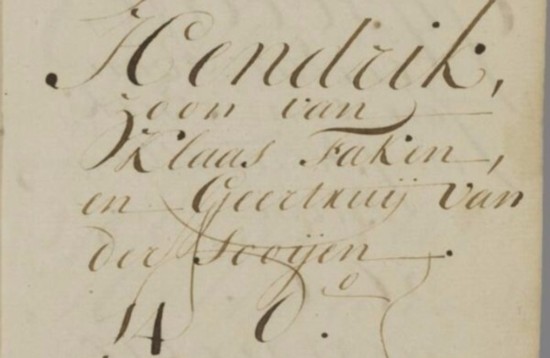 Hendrik,
zoon van
Klaas Faken,
en Geertruij van
der Scoijen.
14 0.